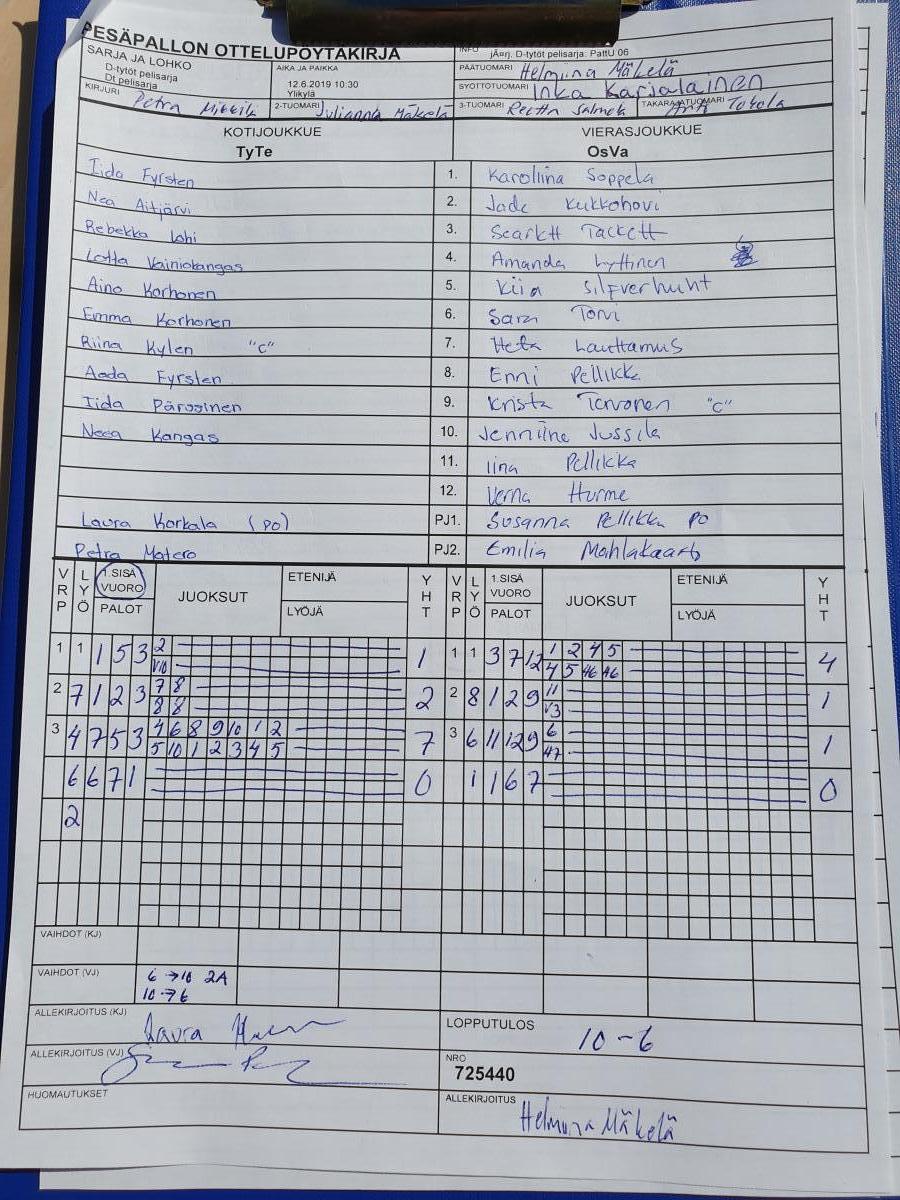 PESÄPALLON OTTELUPÖYTÄKIRJA
SARJA JA LOHKO
D-tytöt pelisarja
Dt pelisarja
AIKA JA PAIKKA
12.6.2019 10:30
Ylikylä
INFO jÄ¤rj. D-tytöt pelisarja: PattU 06
PÄÄTUOMARI Helmiina Mäkelä
SYÖTTÖTUOMARI Inka Karjalainen
KIRJURI Petra
2-TUOMARI Julianna Mäkelä
3-TUOMARI Reetta
TAKARAJATUOMARI Tokola
KOTIJOUKKUE VIERASJOUKKUE
TyTe OsVa
Iida Fyrsten 1. Karoliina Soppela
Nea Aitjärvi 2. Jade Kukkohovi
Rebekka Lohi 3. Scarlett Tackett
Lotta Vainiokangas 4. Amanda Lyttinen
Aino Korhonen 5. Kiia Silfverhuht
Emma Korhonen 6. Sara Torvi
Riina Kylen "C" 7. Veta Lauttamus
Aada Fyrsten 8. Enni Pellikka
Iida Pärssinen 9. Krista Tervonen "C"
Neea Kangas 10. Jenniine Jussila
11. Iina Pellikka
12. Verna Hurme
Laura Korkala (PO) PJ1. Susanna Pellikka PO
Petra Matero PJ2. Emilia
VRP LYÖ 1.SISÄ VUORO PALOT JUOKSUT ETENIJÄ LYÖJÄ YHT VRP LYÖ 1.SISÄ VUORO PALOT JUOKSUT ETENIJÄ LYÖJÄ YHT
1 1 1 5 3 2 1 1 1 3 7 12 1 2 4 5 4
V10 4 5 46 46
2 7 1 2 3 7 8 2 2 8 1 2 9 11 1
8 8 V3
3 4 7 5 3 4 6 8 9 10 1 2 7 3 6 11 12 9 6 1
5 10 1 2 3 4 5 47
6 6 7 1 0 1 1 6 7 0
2
VAIHDOT (KJ)
VAIHDOT (VJ) 6 → 10 2A
10 → 6
ALLEKIRJOITUS (KJ) Laura
LOPPUTULOS 10-6
ALLEKIRJOITUS (VJ)
NRO
725440
HUOMAUTUKSET
ALLEKIRJOITUS Helmiina Mäkelä